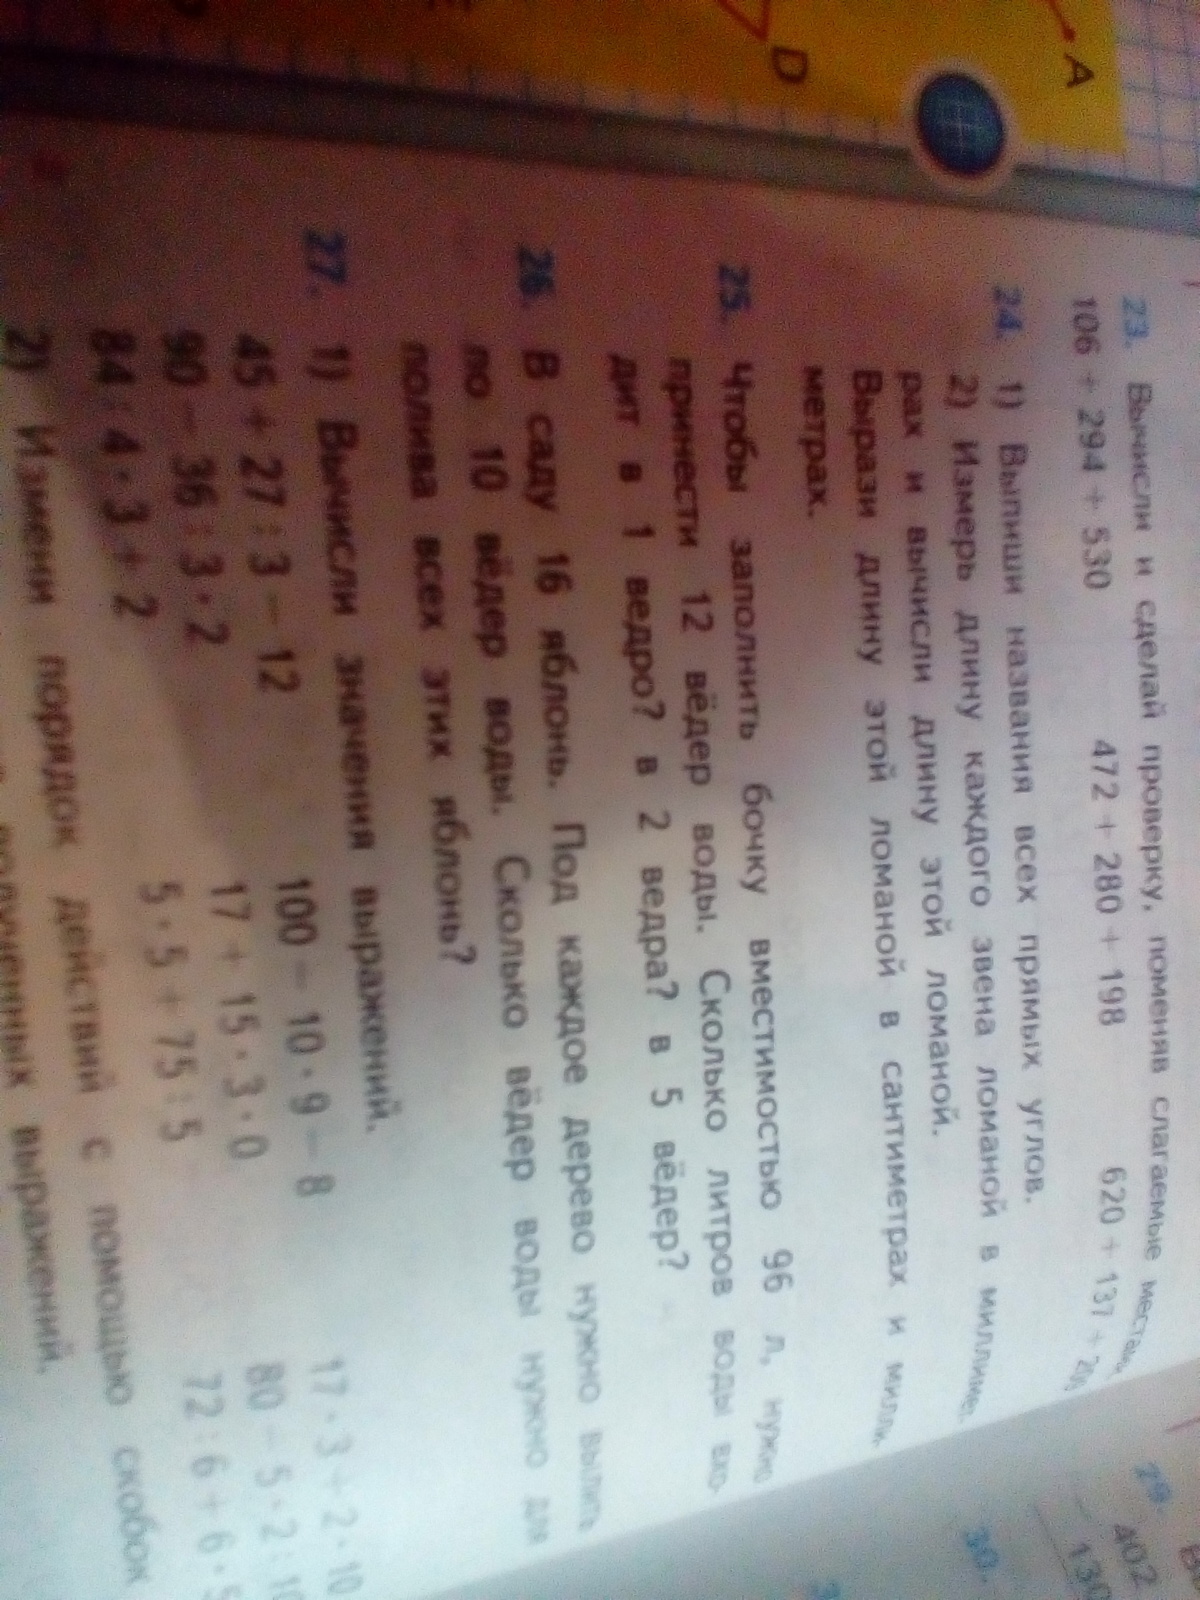 A
D
23. Вычисли и сделай проверку, поменяв слагаемые местами.
106 + 294 + 530 472 + 280 + 198 620 + 137 + 200
24. 1) Выпиши названия всех прямых углов.
2) Измерь длину каждого звена ломаной в миллимет-
рах и вычисли длину этой ломаной.
Вырази длину этой ломаной в сантиметрах и милли-
метрах.
25. Чтобы заполнить бочку вместимостью 96 л, нужно
принести 12 вёдер воды. Сколько литров воды вхо-
дит в 1 ведро? в 2 ведра? в 5 вёдер?
26. В саду 16 яблонь. Под каждое дерево нужно вылить
по 10 вёдер воды. Сколько вёдер воды нужно для
полива всех этих яблонь?
27. 1) Вычисли значения выражений.
45 + 27 : 3 − 12 100 − 10 · 9 − 8 17 · 3 + 2 · 10
90 − 36 : 3 · 2 17 + 15 · 3 · 0 80 − 5 · 2 : 10
84 : 4 · 3 + 2 5 · 5 + 75 : 5 72 : 6 + 6 · 5
2) Измени порядок действий с помощью скобок
выражений.
29.
402
130
30.